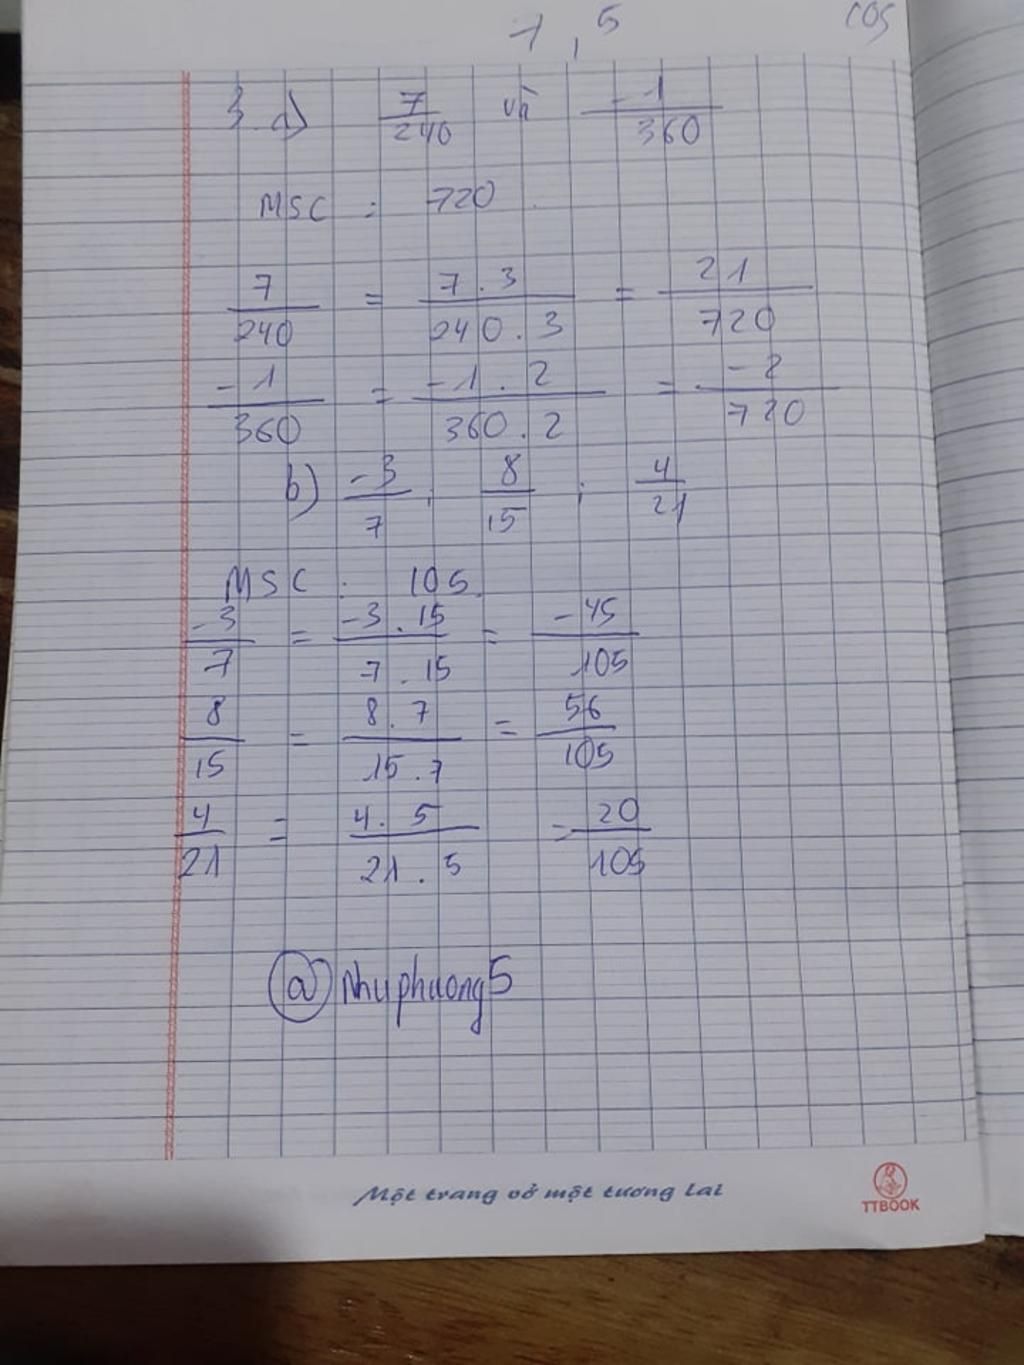 7, 5 cos
3. a) 7/240 và -1/360
MSC : 720
7/240 = 7.3/240.3 = 21/720
-1/360 = -1.2/360.2 = -2/720
b) -3/7 ; 8/15 ; 4/21
MSC : 105
-3/7 = -3.15/7.15 = -45/105
8/15 = 8.7/15.7 = 56/105
4/21 = 4.5/21.5 = 20/105
@Nhuphuong5
Một trang vở một tương lai
TTBOOK